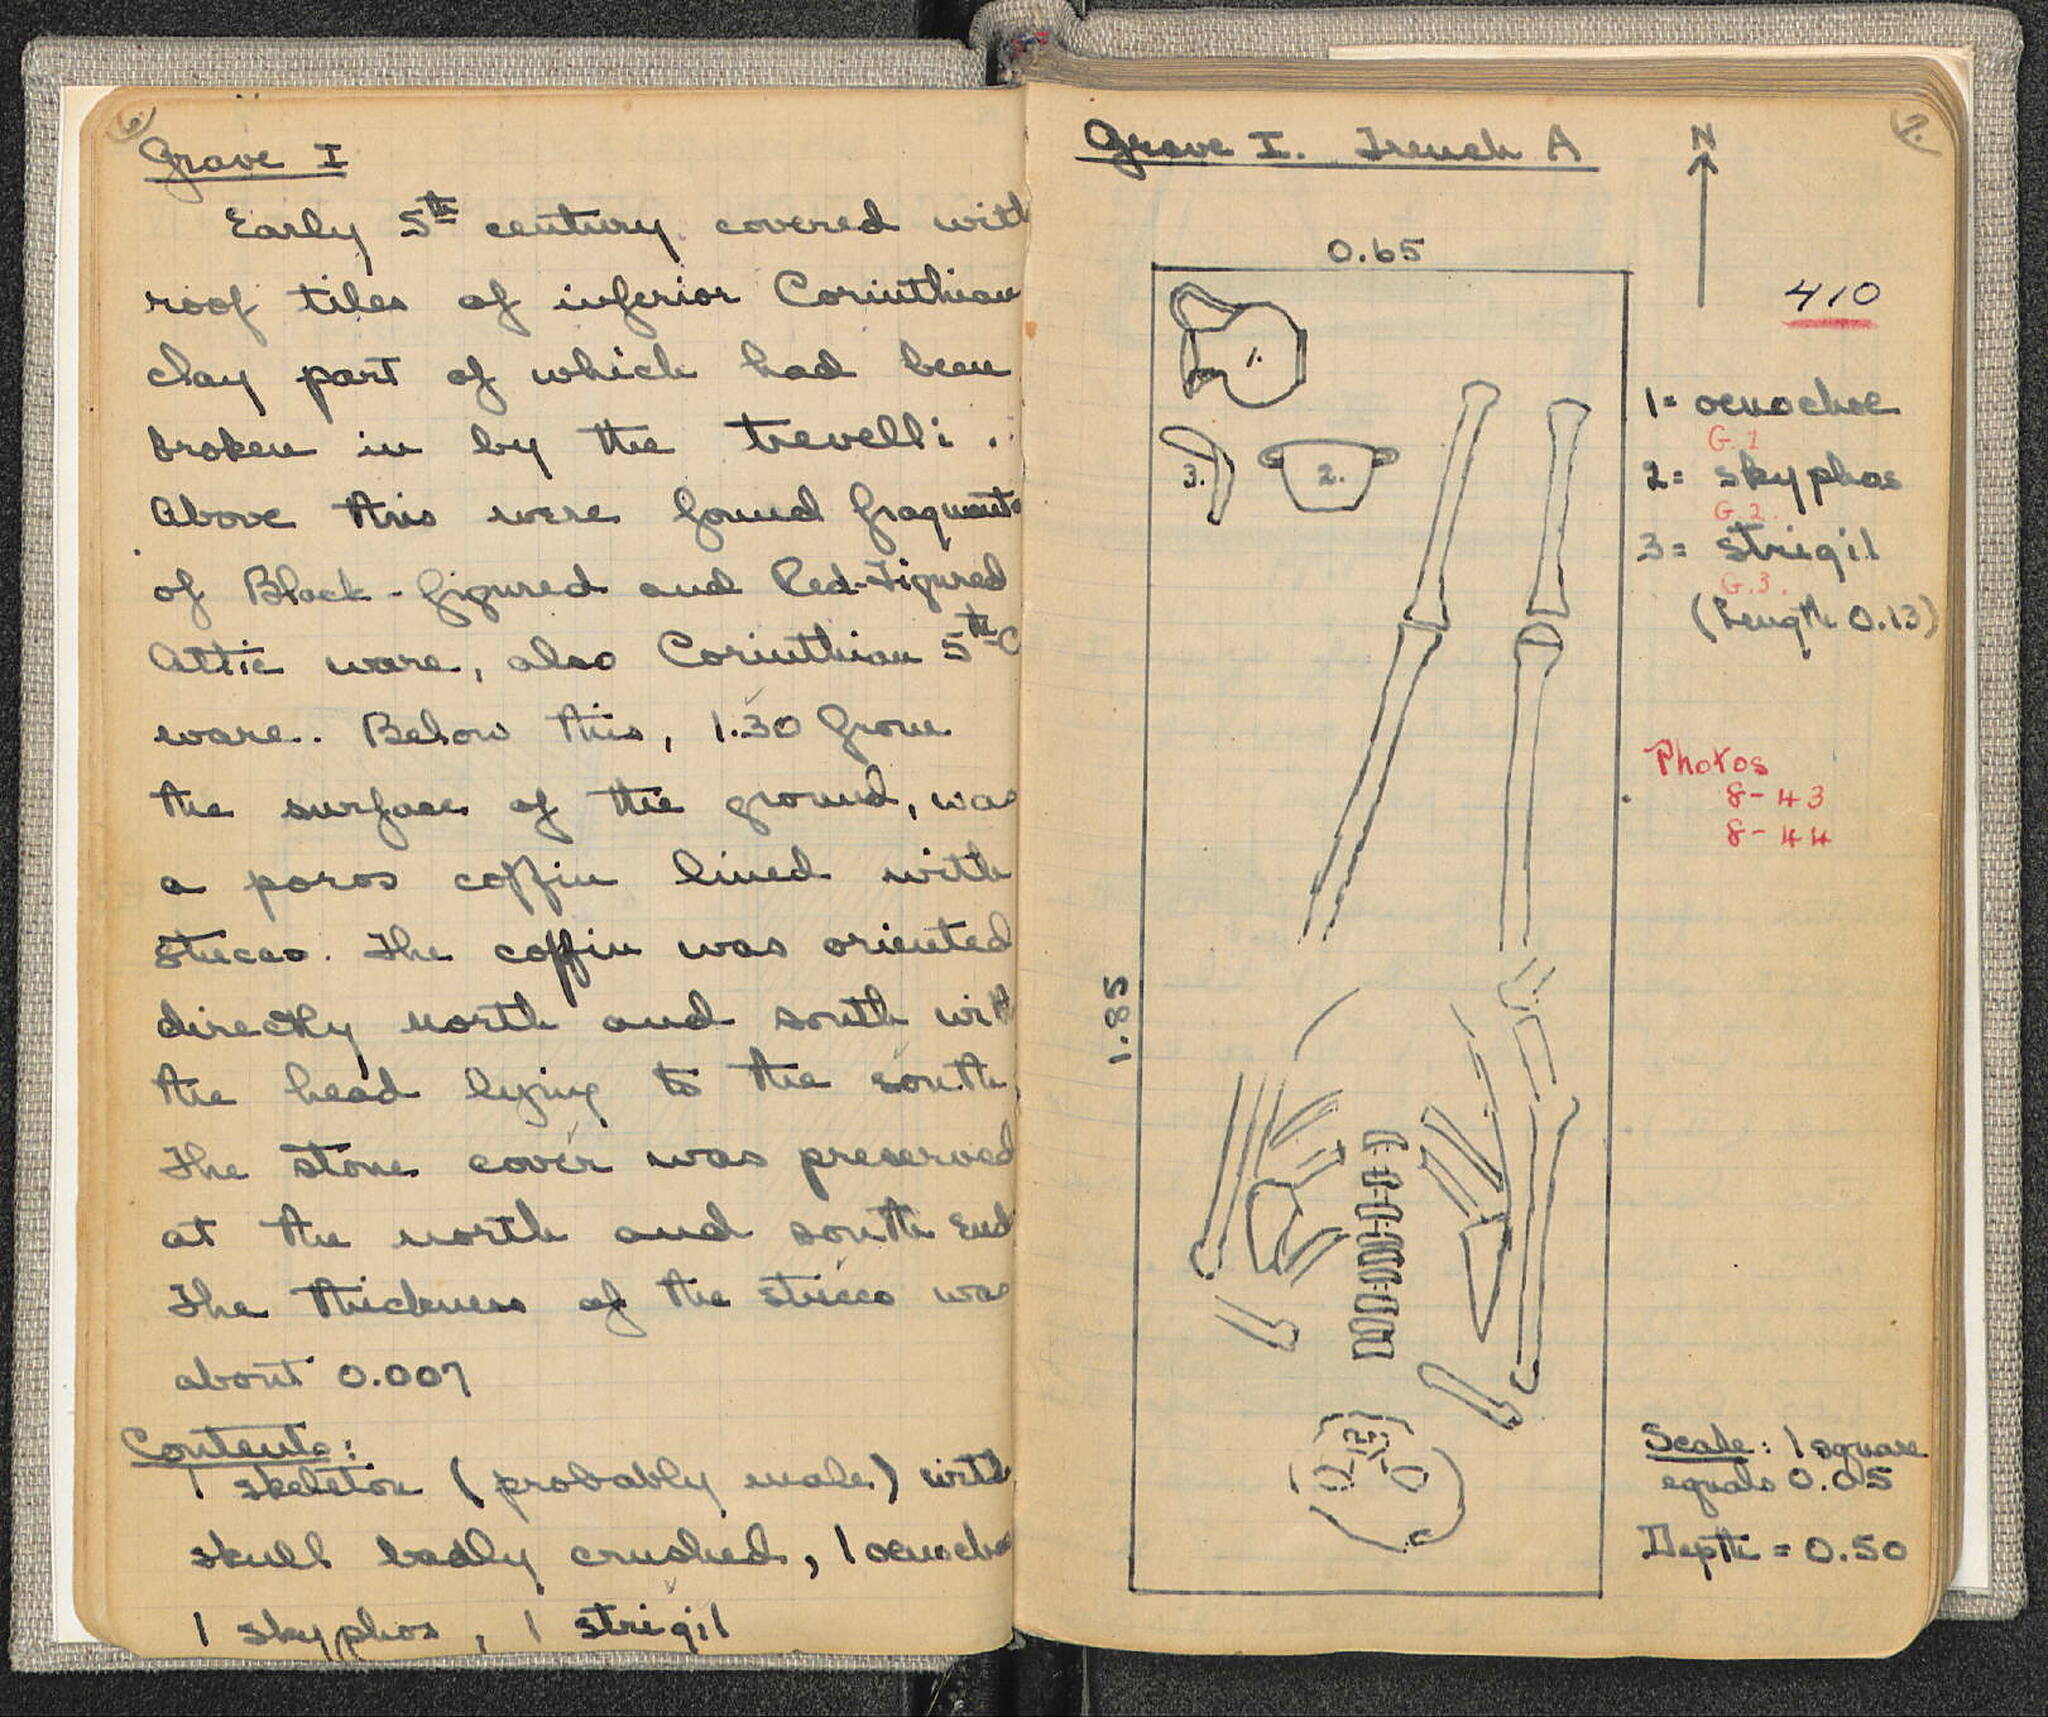 6.
Grave I
Early 5th century covered with
roof tiles of inferior Corinthian
clay part of which had been
broken in by the trevelli.
Above this were found fragments
of Black-figured and Red-Figured
Attic ware, also Corinthian 5th C
ware. Below this, 1.30 from
the surface of the ground, was
a poros coffin lined with
stucco. The coffin was oriented
directly north and south with
the head lying to the south.
The stone cover was preserved
at the north and south end
The thickness of the stucco was
about 0.007
Contents:
1 skeleton (probably male) with
skull badly crushed, 1 oenochoe
1 skyphos, 1 strigil
7.
Grave I. Trench A
N
0.65
410
1.
3.
2.
1= oenochoe
G.1
2= skyphos
G.2.
3= strigil
G.3.
(Length 0.13)
Photos
8-43
8-44
1.85
Scale: 1 square
equals 0.05
Depth = 0.50